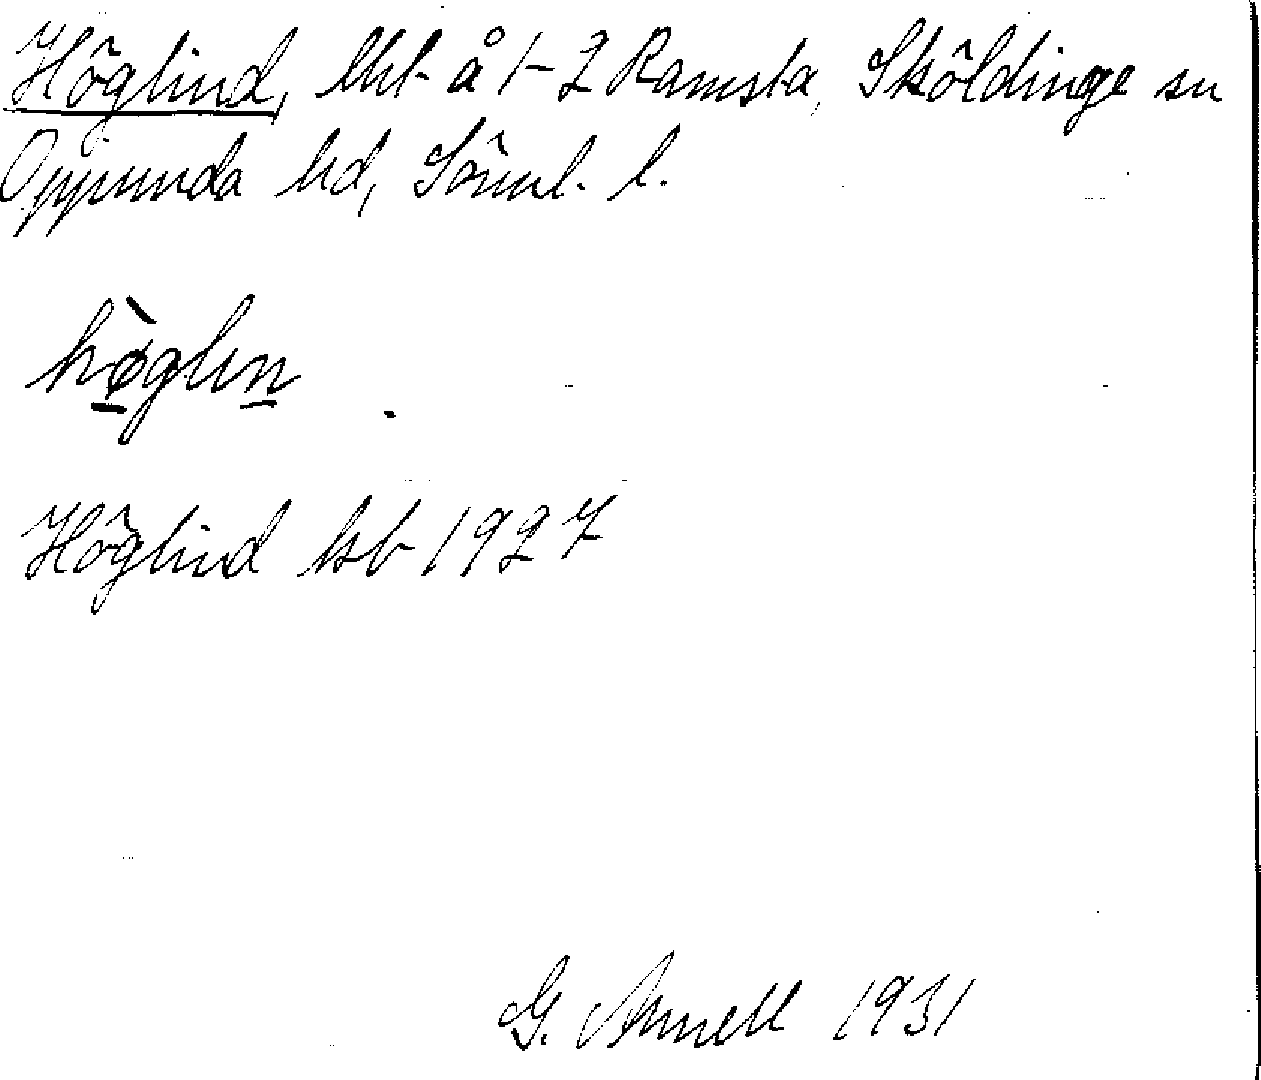 Höglind, lht å 1-2 Ramsta, Sköldinge sn
Oppunda hd, Söml. l.
hø̀glin
Höglind hsb 1927
G. Annell 1931